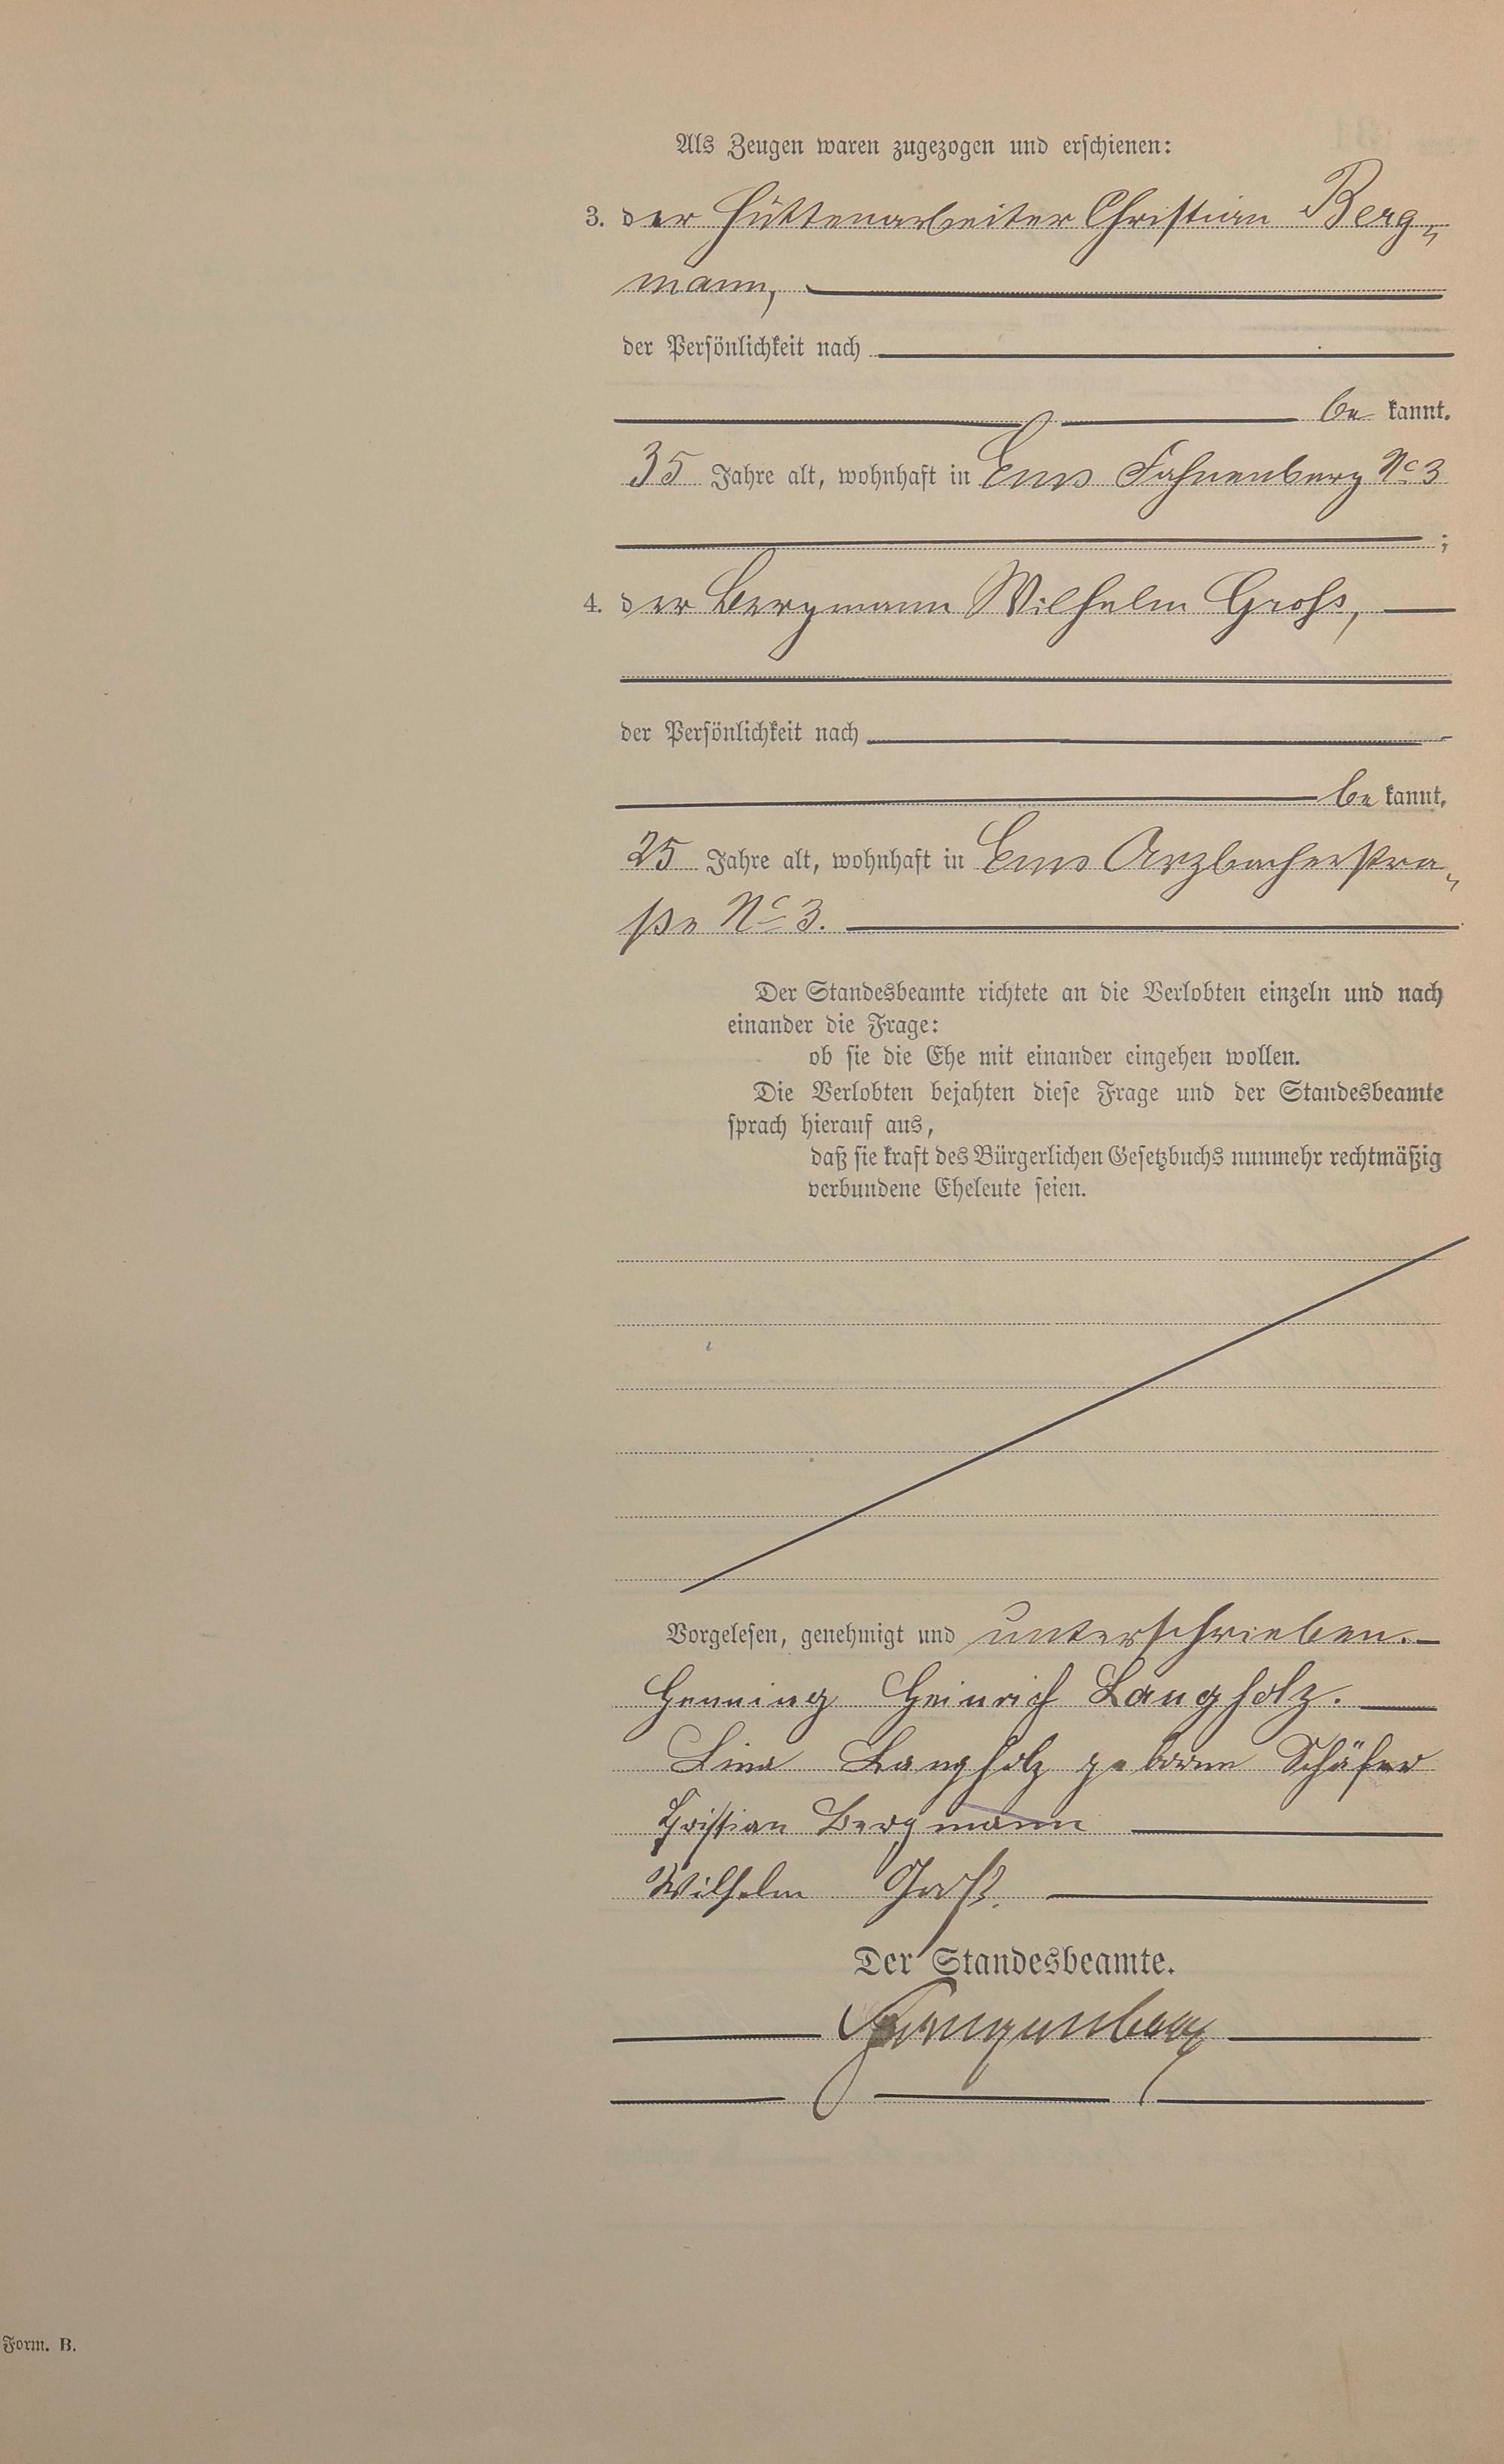 Als Zeugen waren zugezogen und erschienen:
3. der Hüttenarbeiter Christian Berg-
mann,
der Persönlichkeit nach
be kannt.
35 Jahre alt, wohnhaft in Ems Fahnenberg No 3
;
4. der Bergmann Wilhelm Groß,
der Persönlichkeit nach
be kannt.
25 Jahre alt, wohnhaft in Ems Arzbacherstra-
ße No 3.
Der Standesbeamte richtete an die Verlobten einzeln und nach
einander die Frage:
ob sie die Ehe mit einander eingehen wollen.
Die Verlobten bejahten diese Frage und der Standesbeamte
sprach hierauf aus,
daß sie kraft des Bürgerlichen Gesetzbuchs nunmehr rechtmäßig
verbundene Eheleute seien.
Vorgelesen, genehmigt und unterschrieben.
Henning Heinrich Langholz.
Lina Langholz geborene Schäfer
Christian Bergmann
Wilhelm Groß.
Der Standesbeamte.
Form. B.